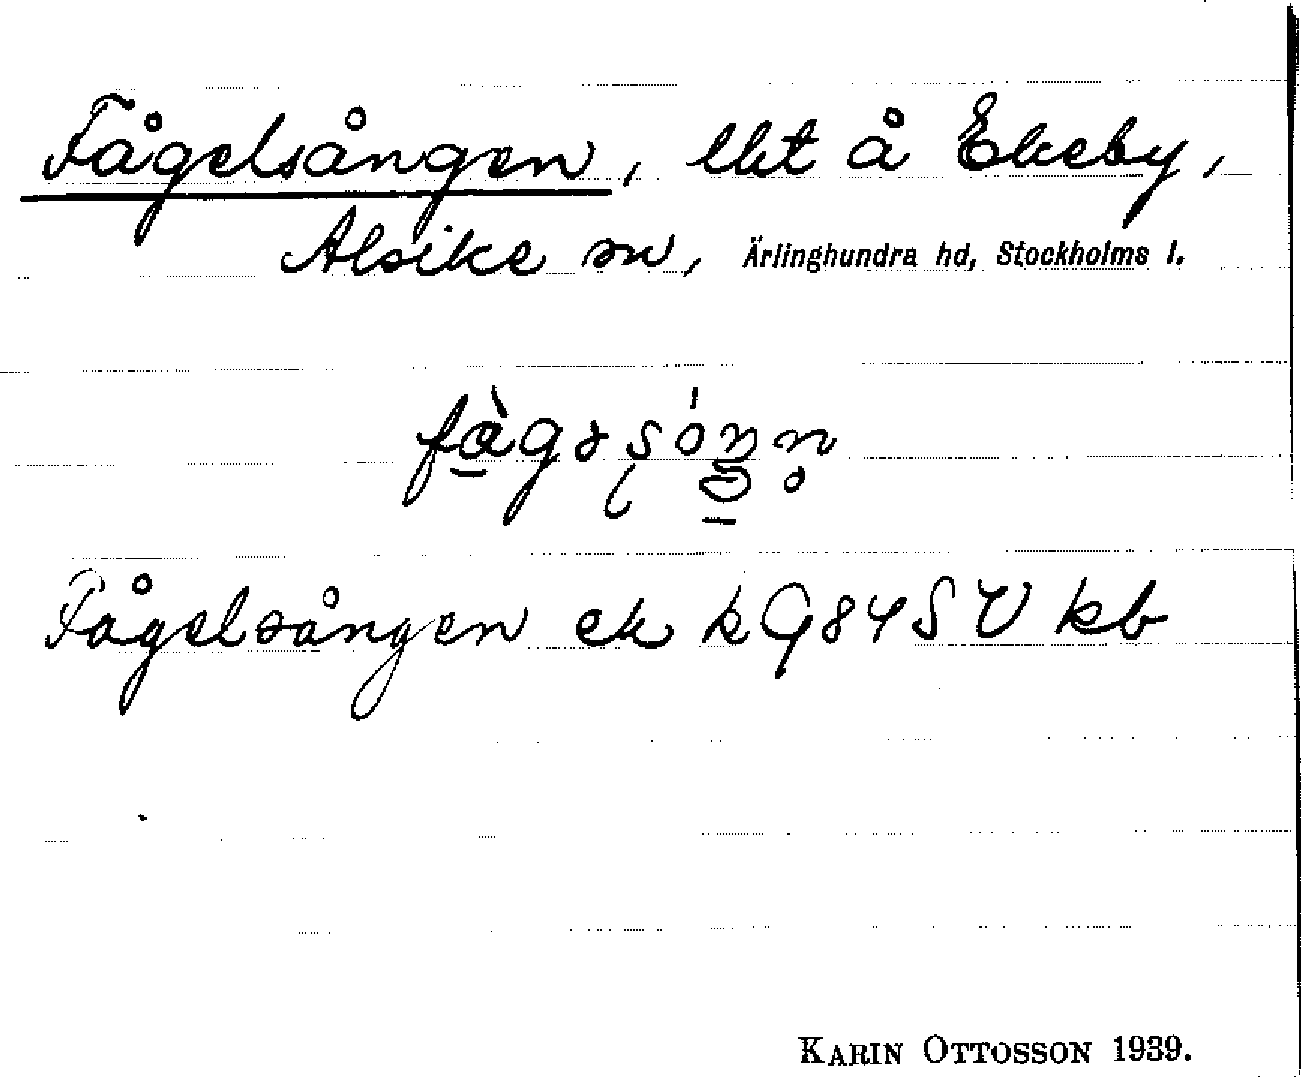 Fågelsången, lht å Ekeby,
Alsike sn, Ärlinghundra hd, Stockholms l.
Fågelsången ek k G84SV kb
KARIN OTTOSSON 1939.